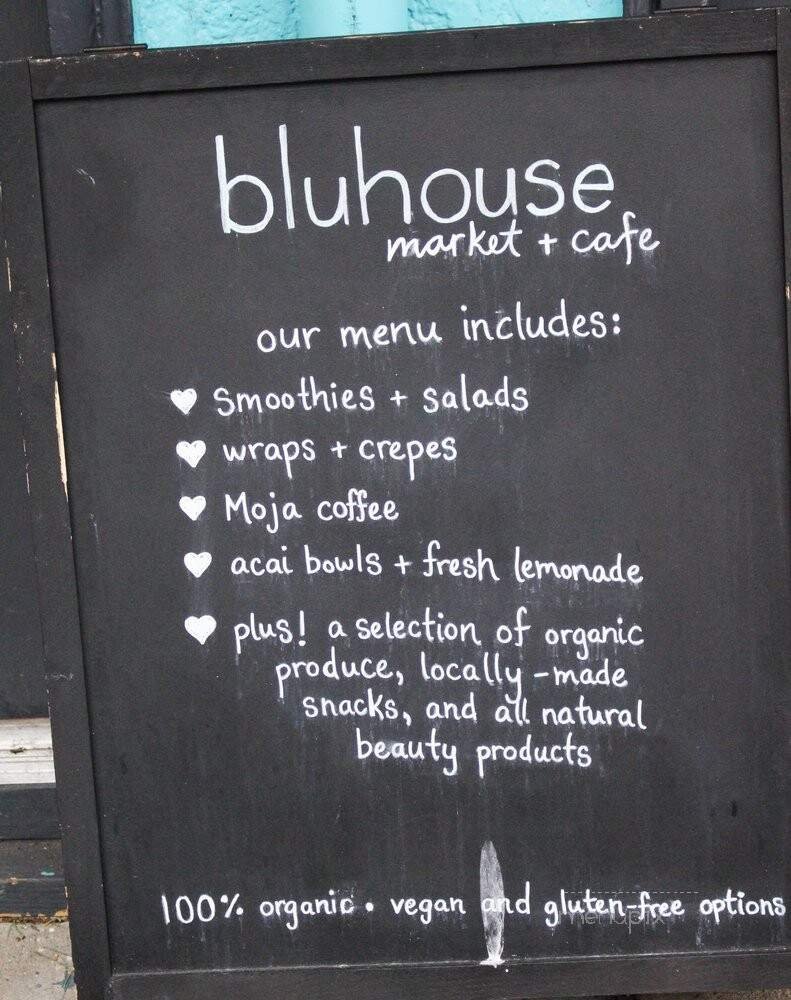 bluhouse
market + cafe
our menu includes:
smoothies + salads
wraps + crepes
Moja coffee
acai bowls + fresh lemonade
plus! a selection of organic
produce, locally-made
snacks, and all natural
beauty products
100% organic • vegan and gluten-free options
menupix